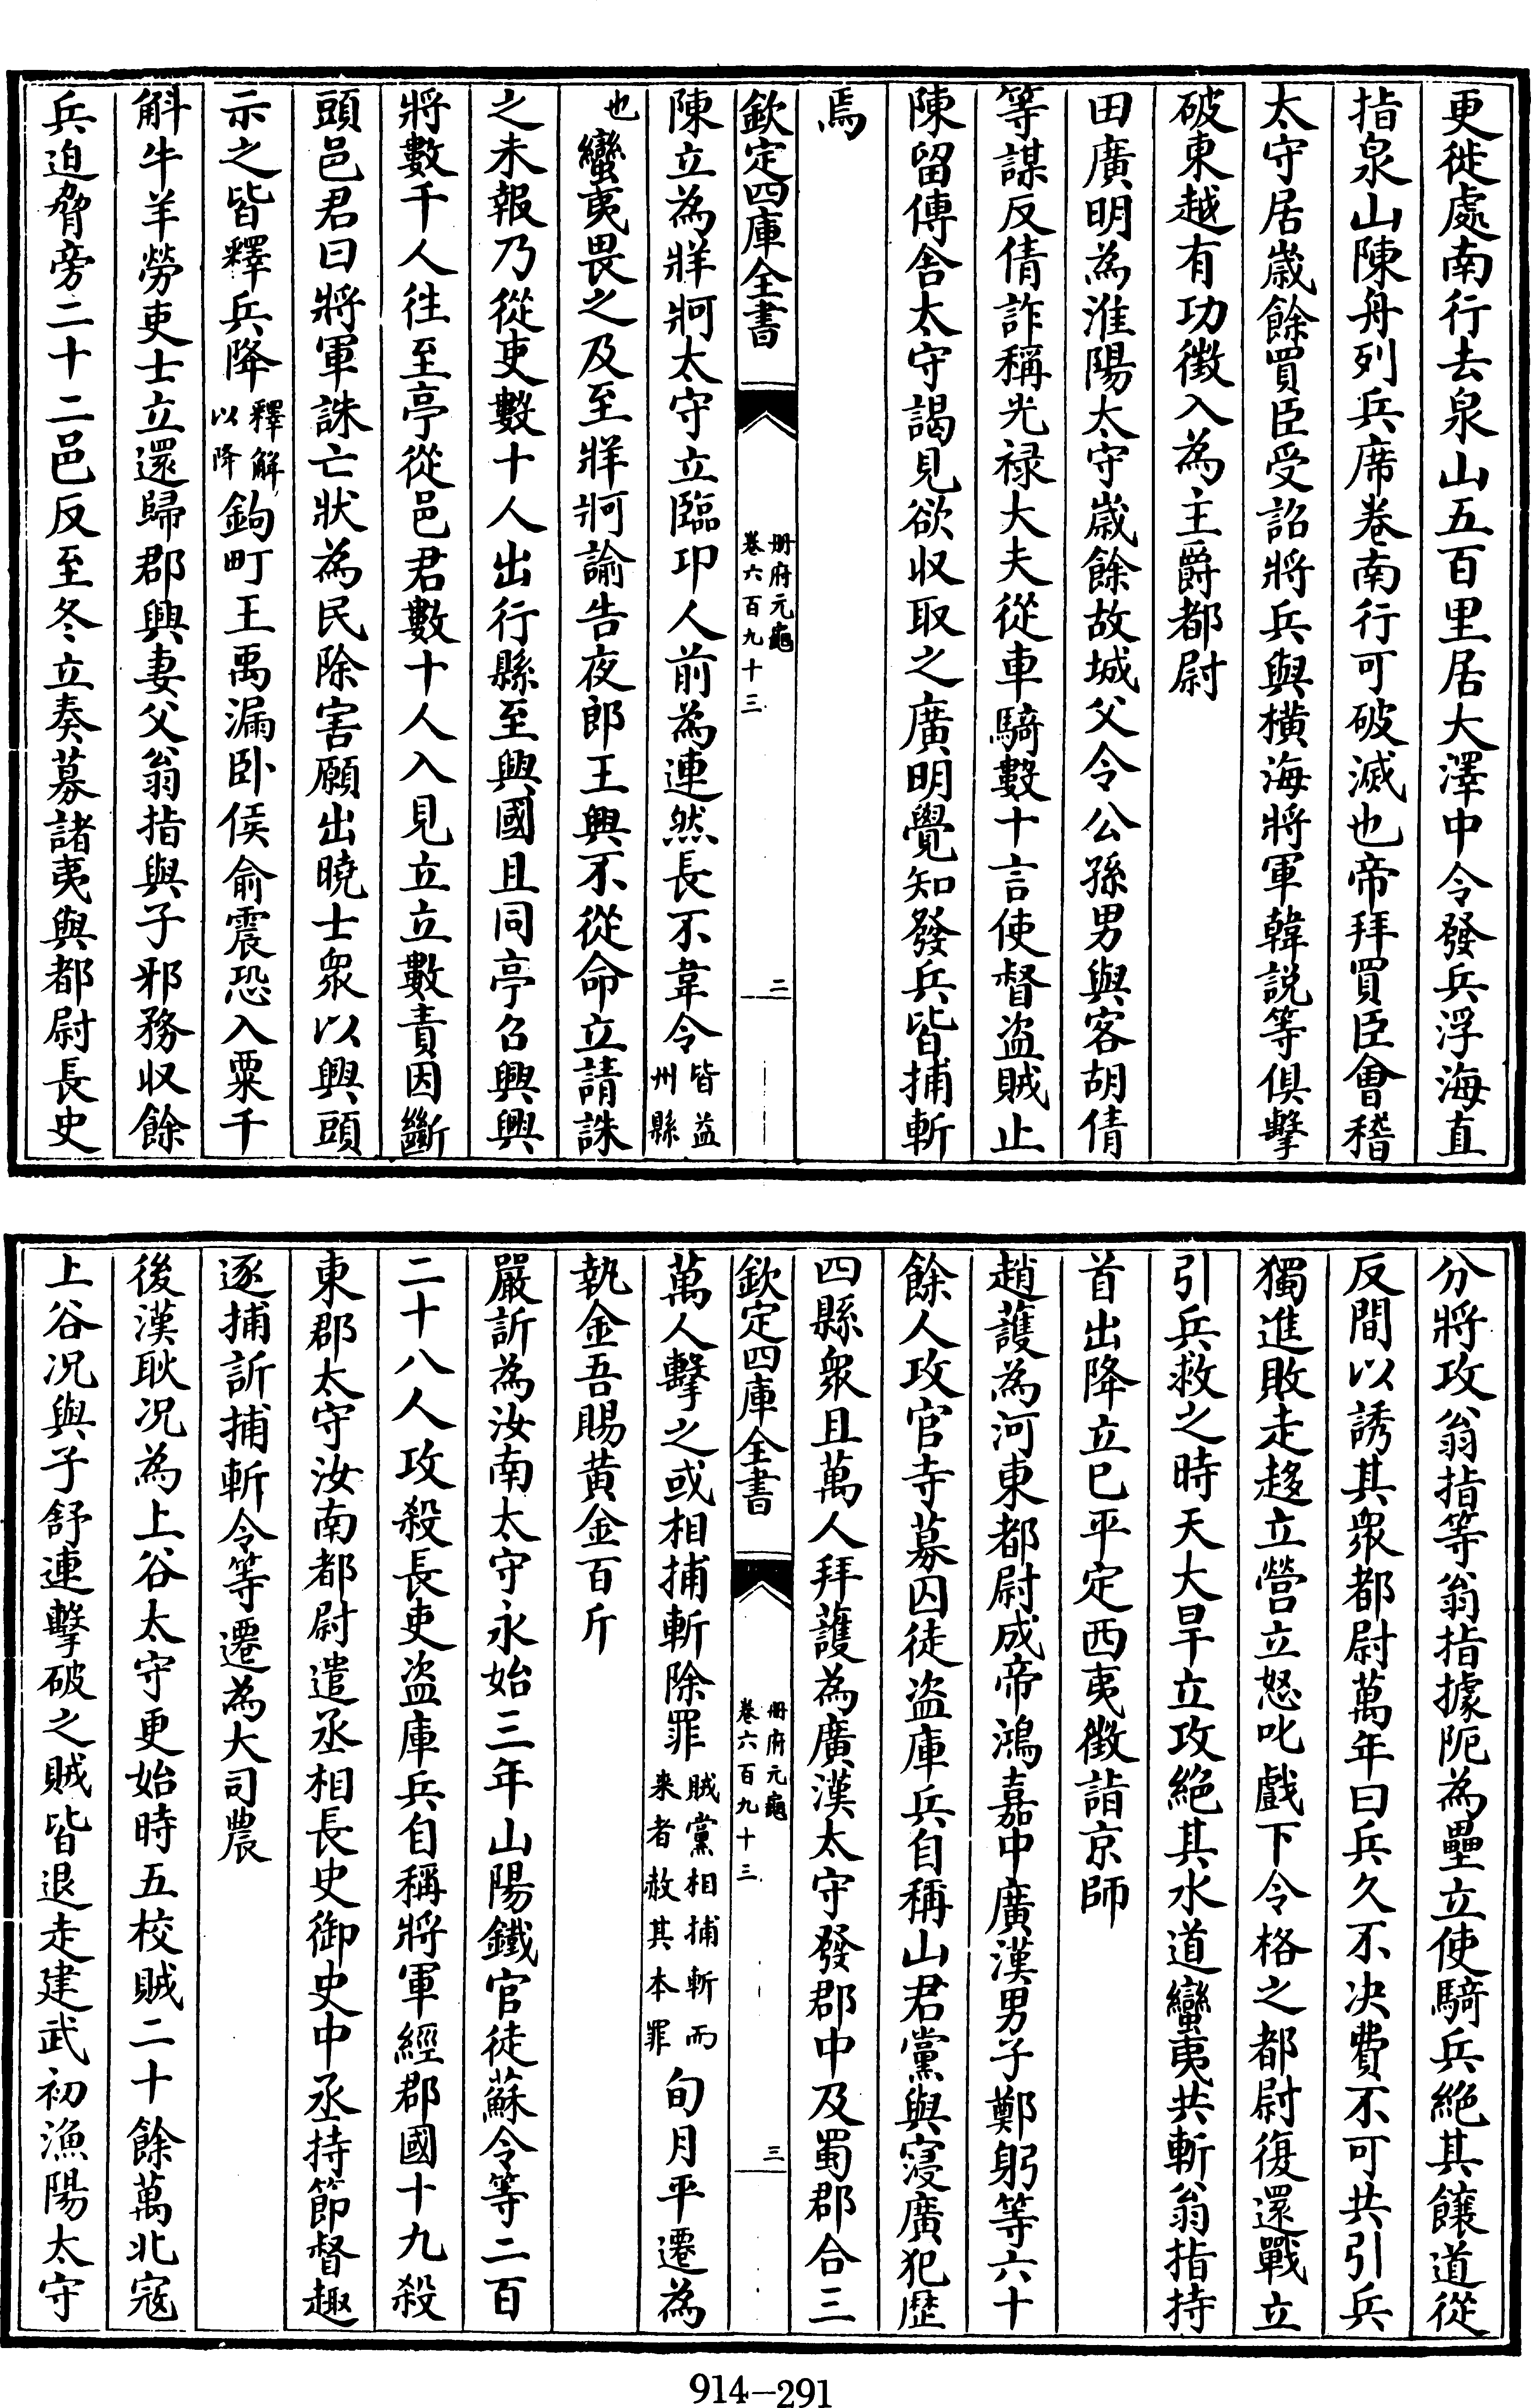 更徙處南行去泉山五百里居大澤中令發兵浮海直
指泉山陳舟列兵席卷南行可破滅也帝拜買臣會稽
太守居歲餘買臣受詔將兵與橫海將軍韓説等俱擊
破東越有功徵入為主爵都尉
田廣明為淮陽太守歲餘故城父令公孫男與客胡倩
等謀反倩詐稱光禄大夫從車騎數十言使督盗賊止
陳留傳舍太守謁見欲收取之廣明覺知發兵皆捕斬
焉
欽定四庫全書
冊府元龜
卷六百九十三
二
陳立為牂牁太守立臨卭人前為連然長不韋令皆益州縣
也蠻夷畏之及至牂牁諭告夜郎王興不從命立請誅
之未報乃從吏數十人出行縣至興國且同亭召興興
將數千人往至亭從邑君數十人入見立立數責因斷
頭邑君曰將軍誅亡狀為民除害願出曉士衆以興頭
示之皆釋兵降釋解以降鉤町王禹漏卧侯俞震恐入粟千
斛牛羊勞吏士立還歸郡興妻父翁指與子邪務收餘
兵迫脅旁二十二邑反至冬立奏募諸夷與都尉長史
分將攻翁指等翁指據阨為壘立使騎兵絶其饟道從
反間以誘其衆都尉萬年曰兵久不决費不可共引兵
獨進敗走趍立營立怒叱戲下令格之都尉復還戰立
引兵救之時天大旱立攻絶其水道蠻夷共斬翁指持
首出降立已平定西夷徵詣京師
趙護為河東都尉成帝鴻嘉中廣漢男子鄭躬等六十
餘人攻官寺募囚徒盗庫兵自稱山君黨與寖廣犯歴
四縣衆且萬人拜護為廣漢太守發郡中及蜀郡合三
欽定四庫全書
冊府元龜
卷六百九十三
三
萬人擊之或相捕斬除罪賊黨相捕斬而来者赦其本罪旬月平遷為
執金吾賜黄金百斤
嚴訢為汝南太守永始三年山陽鐵官徒蘇令等二百
二十八人攻殺長吏盗庫兵自稱將軍經郡國十九殺
東郡太守汝南都尉遣丞相長史御史中丞持節督趣
逐捕訢捕斬令等遷為大司農
後漢耿况為上谷太守更始時五校賊二十餘萬北寇
上谷况與子舒連擊破之賊皆退走建武初漁陽太守
914-291